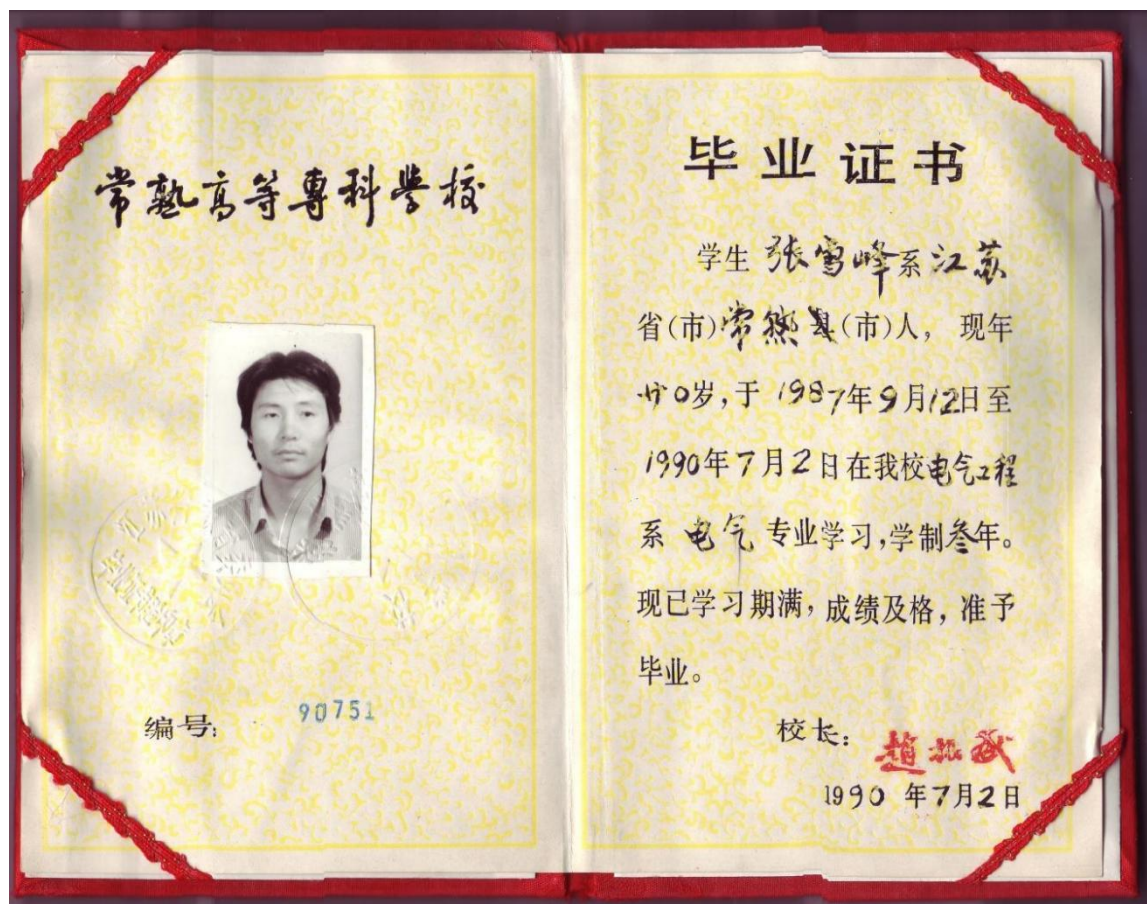 常熟高等專科學校
编号: 90751
毕业证书
学生 张雪峰 系 江苏
省(市) 常熟县(市)人, 现年
廿0岁,于 1987年9月12日至
1990年7月2日在我校电气工程
系 电气 专业学习,学制叁年。
现已学习期满,成绩及格,准予
毕业。
校长: 趙振武
1990 年7月2日